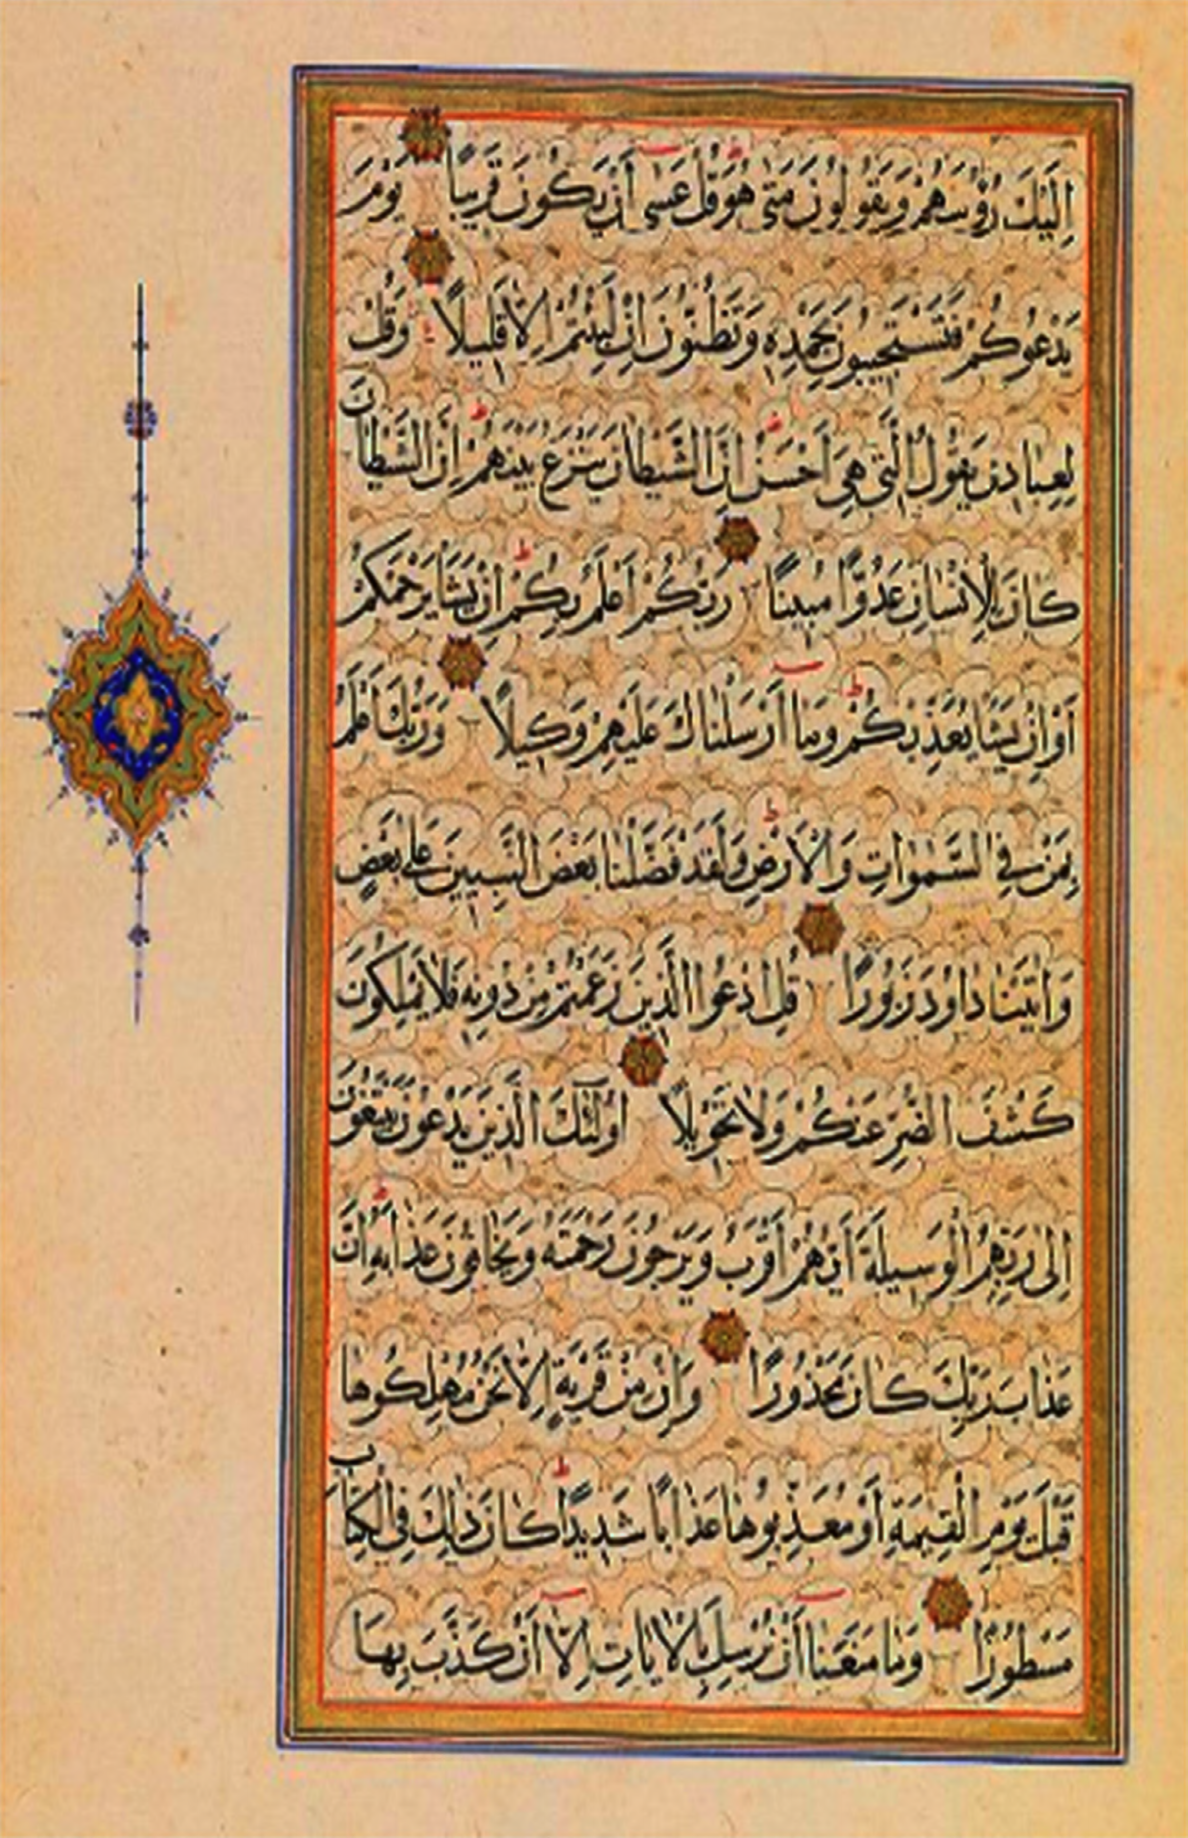 اِلَيْكَ رُؤُسَهُمْ وَيَقُولُونَ مَتىٰ هُوَ قُلْ عَسىٰ أَنْ يَكُونَ قَرِيبًا يَوْمَ
يَدْعُوكُمْ فَتَسْتَجِيبُونَ بِحَمْدِهِ وَتَظُنُّونَ اِنْ لَبِثْتُمْ اِلَّا قَلِيلًا وَقُلْ
لِعِبَادِى يَقُولُ الَّتِي هِيَ أَحْسَنُ اِنَّ الشَّيْطَانَ يَنْزَغُ بَيْنَهُمْ اِنَّ الشَّيْطَانَ
كَانَ لِلْاِنْسَانِ عَدُوًّا مُبِينًا رَبُّكُمْ اَعْلَمُ بِكُمْ اِنْ يَشَأْ يَرْحَمْكُمْ
أَوْ اِنْ يَشَأْ يُعَذِّبْكُمْ وَمَا أَرْسَلْنَاكَ عَلَيْهِمْ وَكِيلًا وَرَبُّكَ اَعْلَمُ
بِمَنْ فِي السَّمٰوَاتِ وَالْاَرْضِ وَلَقَدْ فَضَّلْنَا بَعْضَ النَّبِيِّينَ عَلىٰ بَعْضٍ
وَاٰتَيْنَا دَاوُدَ زَبُورًا قُلِ ادْعُوا الَّذِينَ زَعَمْتُمْ مِنْ دُونِهِ فَلَا يَمْلِكُونَ
كَشْفَ الضُّرِّ عَنْكُمْ وَلَا تَحْوِيلًا اُولٰئِكَ الَّذِينَ يَدْعُونَ يَبْتَغُونَ
اِلىٰ رَبِّهِمُ الْوَسِيلَةَ أَيُّهُمْ أَقْرَبُ وَيَرْجُونَ رَحْمَتَهُ وَيَخَافُونَ عَذَابَهُ اِنَّ
عَذَابَ رَبِّكَ كَانَ مَحْذُورًا وَاِنْ مِنْ قَرْيَةٍ اِلَّا نَحْنُ مُهْلِكُوهَا
قَبْلَ يَوْمِ الْقِيٰمَةِ أَوْ مُعَذِّبُوهَا عَذَابًا شَدِيدًا كَانَ ذٰلِكَ فِي الْكِتَابِ
مَسْطُورًا وَمَا مَنَعَنَا أَنْ نُرْسِلَ بِالْاٰيَاتِ اِلَّا أَنْ كَذَّبَ بِهَا